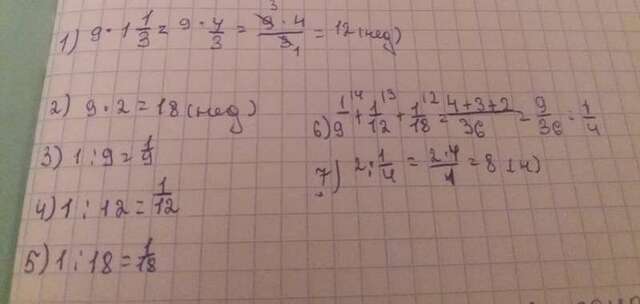 1) 9 · 1 1/3 = 9 · 4/3 = 9³ · 4 / 3₁ = 12 (нед)
2) 9 · 2 = 18 (нед)
3) 1 : 9 = 1/9
4) 1 : 12 = 1/12
5) 1 : 18 = 1/18
6) 1/9 ⁴ + 1/12 ³ + 1/18 ² = 4+3+2 / 36 = 9/36 = 1/4
7) 2 : 1/4 = 2·4 / 1 = 8 (ч)